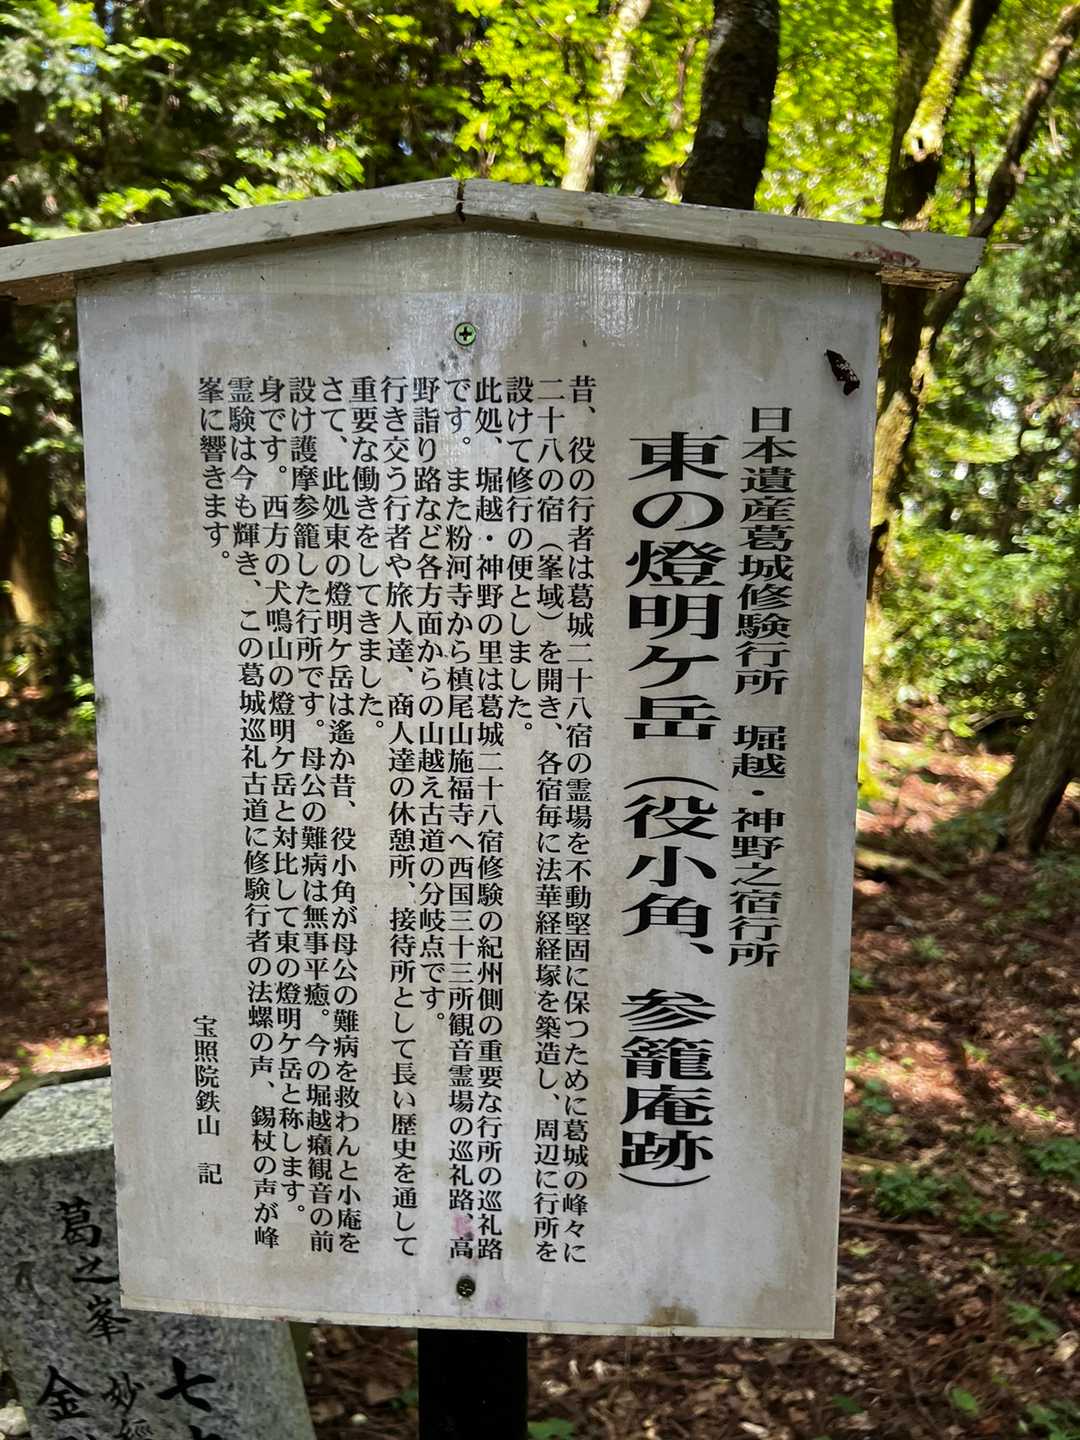 日本遺産葛城修験行所　堀越・神野之宿行所
東の燈明ケ岳（役小角、参籠庵跡）
昔、役の行者は葛城二十八宿の霊場を不動堅固に保つために葛城の峰々に
二十八の宿（峯域）を開き、各宿毎に法華経経塚を築造し、周辺に行所を
設けて修行の便としました。
此処、堀越・神野の里は葛城二十八宿修験の紀州側の重要な行所の巡礼路
です。また粉河寺から槙尾山施福寺へ西国三十三所観音霊場の巡礼路、高
野詣り路など各方面からの山越え古道の分岐点です。
行き交う行者や旅人達、商人達の休憩所、接待所として長い歴史を通して
重要な働きをしてきました。
さて、此処東の燈明ケ岳は遙か昔、役小角が母公の難病を救わんと小庵を
設け護摩参籠した行所です。母公の難病は無事平癒。今の堀越癪観音の前
身です。西方の犬鳴山の燈明ケ岳と対比して東の燈明ケ岳と称します。
霊験は今も輝き、この葛城巡礼古道に修験行者の法螺の声、錫杖の声が峰
峯に響きます。
宝照院鉄山　記
七
妙経
葛之峯
金